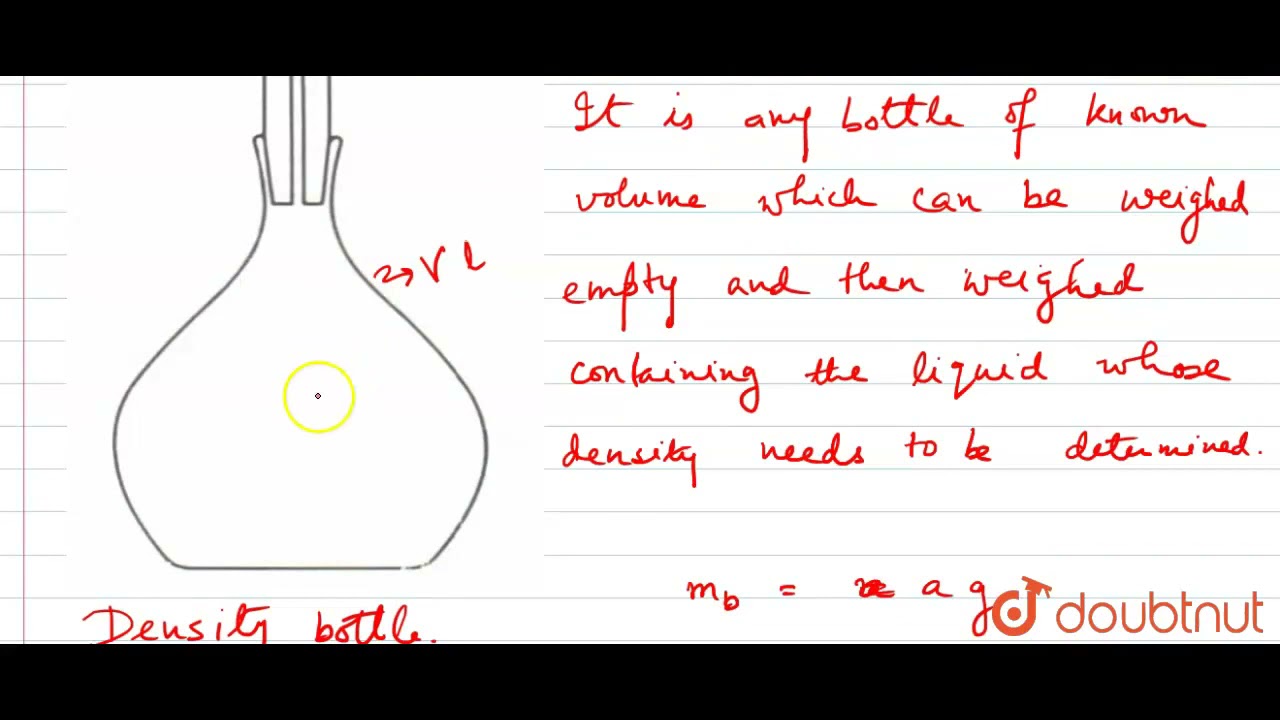 It is any bottle of known
volume which can be weighed
→ V l
empty and then weighed
containing the liquid whose
density needs to be determined.
m_b = a g
doubtnut
Density bottle.